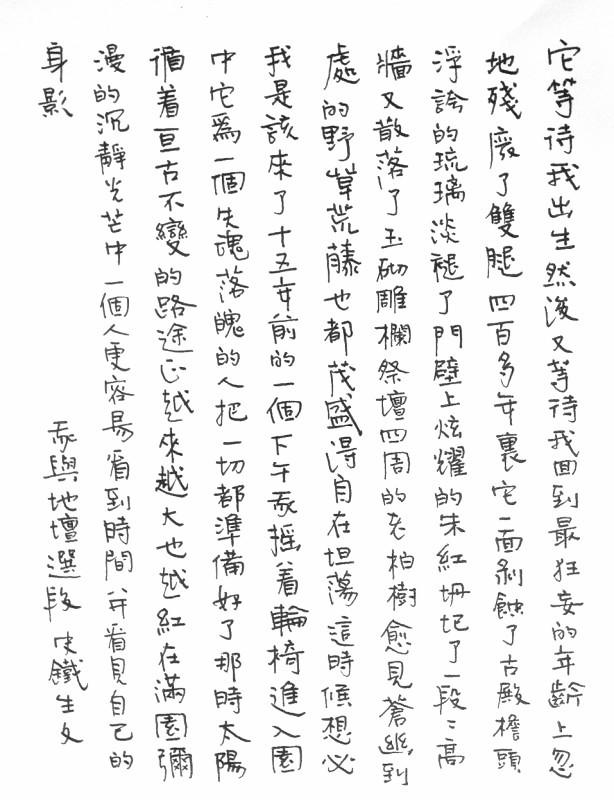 它等待我出生然後又等待我回到最狂妄的年齡上忽
地殘廢了雙腿四百多年裏它一面剝蝕了古殿檐頭
浮誇的琉璃淡褪了門壁上炫耀的朱紅坍圮了一段〻高
牆又散落了玉砌雕欄祭壇四周的老柏樹愈見蒼幽到
處的野草荒藤也都茂盛得自在坦蕩這時候想必
我是該來了十五年前的一個下午我搖着輪椅進入園
中它爲一個失魂落魄的人把一切都準備好了那時太陽
循着亘古不變的路途正越來越大也越紅在滿園彌
漫的沉靜光芒中一個人更容易看到時間并看見自己的
身影
我與地壇選段史鐵生文